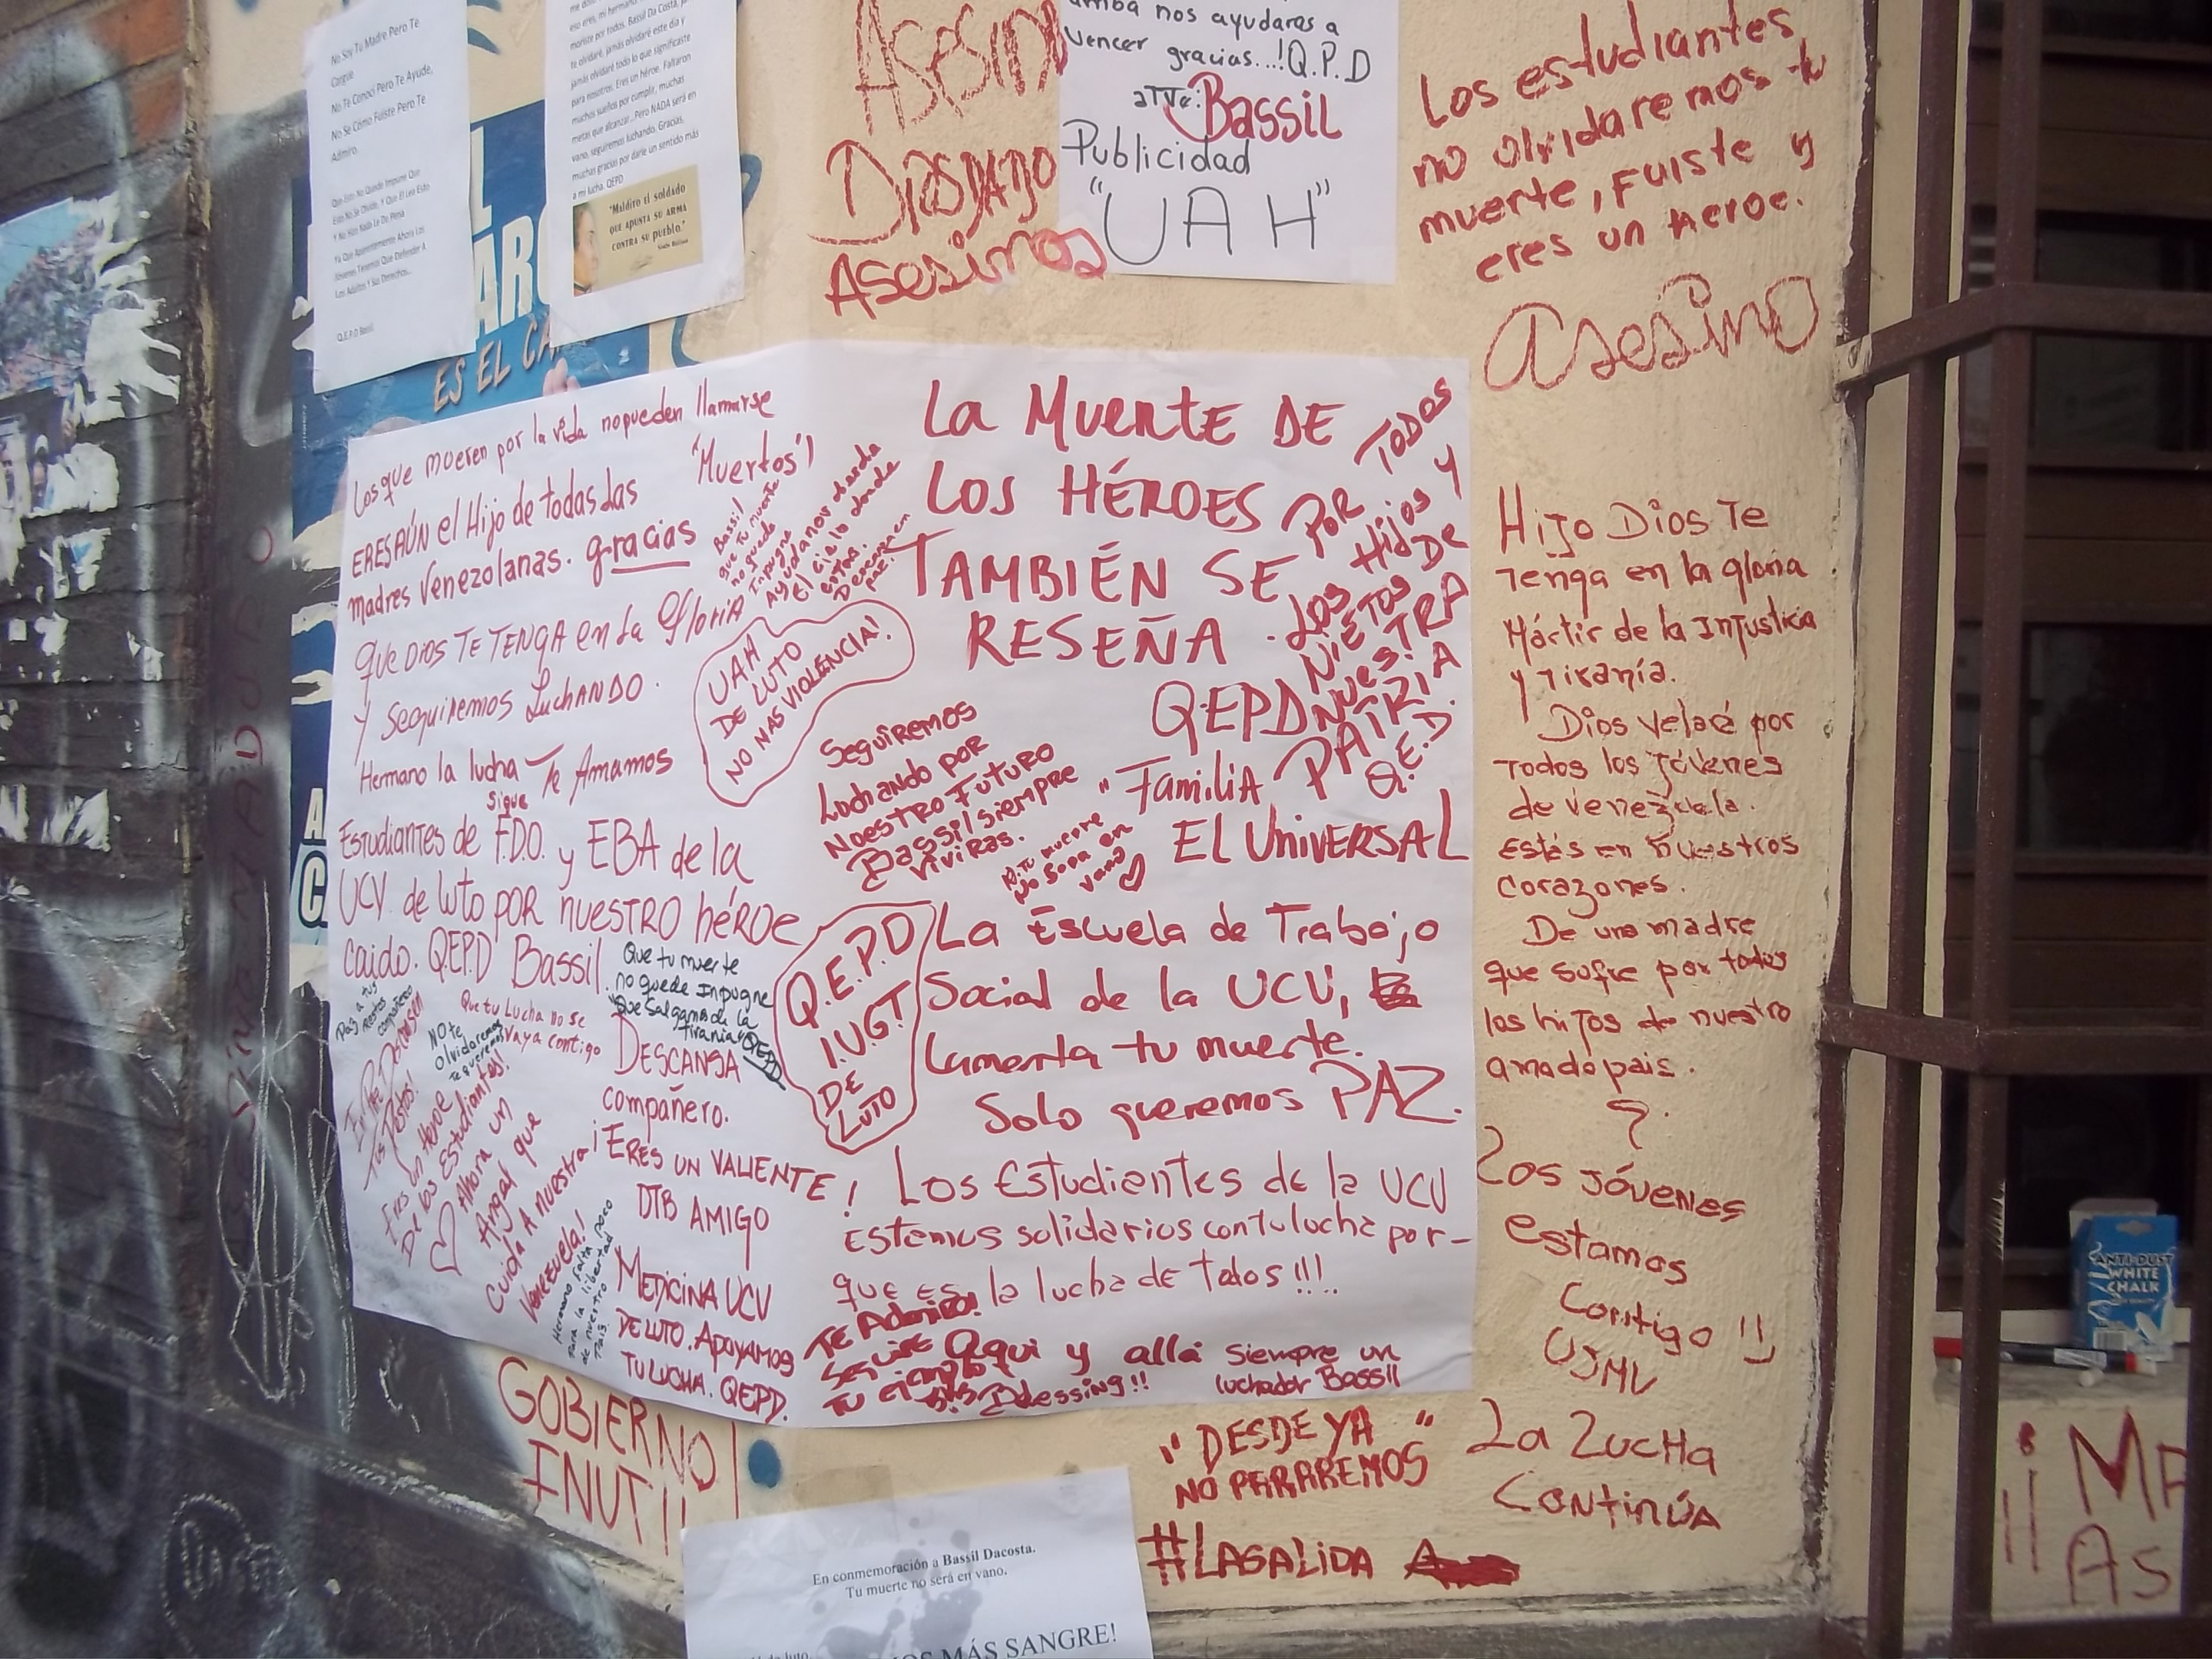 No Soy Tu Madre Pero Te
Congue
No Te Conocí Pero Te Ayude,
No Se Cómo Fuiste Pero Te
Admiro.
Que Esto No Quede Impune Que
Esto No Se Olvide, Y Que El Lea Esto
Y No Han Nada Le De Pena
Ya Que Aparentemente Ahora Los
Jóvenes Tenemos Que Defender A
Los Adultos Y Sus Derechos...
Q.E.P.D Bassil.
eso eres, mi hermano
por todos. Bassil Da Costa,
te olvidaré, jamás olvidaré este día y
jamás olvidaré todo lo que significaste
para nosotros. Eres un héroe. Faltaron
muchos sueños por cumplir, muchas
metas que alcanzar...Pero NADA será en
vano, seguiremos luchando. Gracias,
muchas gracias por darle un sentido más
a mi lucha. QEPD
"Maldito el soldado
que apunta su arma
contra su pueblo."
Simón Bolívar
ARO
ES EL CA
ASESINO
DIOSDADO
ASESINOS
nos ayudaras a
vencer gracias...!Q.P.D
ATTe: Bassil
Publicidad
"UAH"
Los estudiantes
no olvidaremos tu
muerte, Fuiste y
eres un Heroe.
asesino
Los que mueren por la vida no pueden llamarse
'Muertos'!
ERES AÚN el Hijo de todas las
madres Venezolanas. gracias
Que DIOS TE TENGA en La GloRIA
y SeguiRemos LuchANDO.
Hermano la lucha Te Amamos
Sigue
Bassil
que Tu muerte
no quede
Inpugne
Ayudanos desde
El cielo donde
estas.
Descansa en
Paz!
UAH
DE LUTO
NO MAS VIOLENCIA!
Estudiantes de F.D.O. y EBA de la
UCV de luto POR nuestRO héroe
caido. QEPD Bassil.
Que tu muerte
no quede Inpugne
"Que salgamos de la
tirania" QEPD
Paz a tus
Restos
compañero
NO te
olvidaremos
Te queremos
Que tu Lucha no se
vaya contigo
DESCANSA
compañero.
Tus Restos!
Eres un Heroe
De los Estudiantes!
Ahora un
Angel que
cuida A nuestra
Venezuela!
¡ERES UN VALIENTE!
DTB AMIGO
Hermano falta poco
para la libertad
de nuestro
Pais.
MEDICINA UCV
DE LUTO. APOYAMOS
TU LUCHA. QEPD.
La Muerte DE
LOS HÉROES
TAMBIÉN SE
RESEÑA.
QEPD
"Familia
EL UNIVERSAL
POR TODOS
LOS HIJOS Y
NIETOS DE
NUESTRA
PATRIA
Q.E.D.
Seguiremos
Luchando por
Nuestro Futuro
Bassil siempre
viviras.
Tu muerte
No sera en
vano
Q.E.P.D
I.U.G.T
DE
LUTO
La Escuela de Trabajo
Social de la UCV,
lamenta tu muerte.
Solo queremos PAZ.
Los Estudiantes de la UCV
Estamos solidarios con tu lucha por-
que es la lucha de todos!!!.
Te Admiro!
Seguire
Tu ejemplo
Aqui y allá siempre un
luchador Bassil
Blessing!!
Hijo Dios Te
Tenga en la gloria
Mártir de la Injusticia
y Tiranía.
Dios velaré por
Todos los Jóvenes
de Venezuela.
Estás en nuestros
Corazones.
De una madre
que sufre por todos
los hijos de nuestro
amado pais.
Los jóvenes
Estamos
Contigo !!
USMV
La LucHa
Continúa
GOBIERNO
INUTIL
"DESDE YA
NO PARAREMOS"
#LASALIDA
En conmemoración a Bassil Dacosta.
Tu muerte no será en vano.
MÁS SANGRE!
ANTI-DUST
WHITE
CHALK